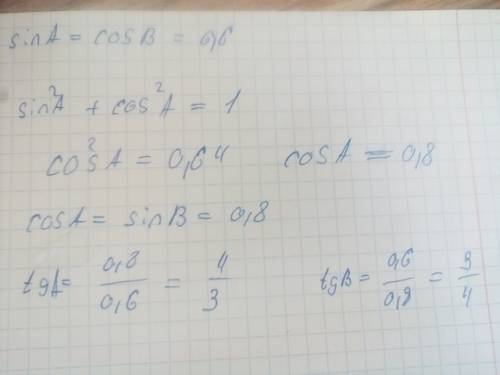 sinA = cosB = 0,6
sin²A + cos²A = 1
cos²A = 0,64 cosA = 0,8
cosA = sinB = 0,8
tgA = 0,8/0,6 = 4/3 tgB = 0,6/0,8 = 3/4